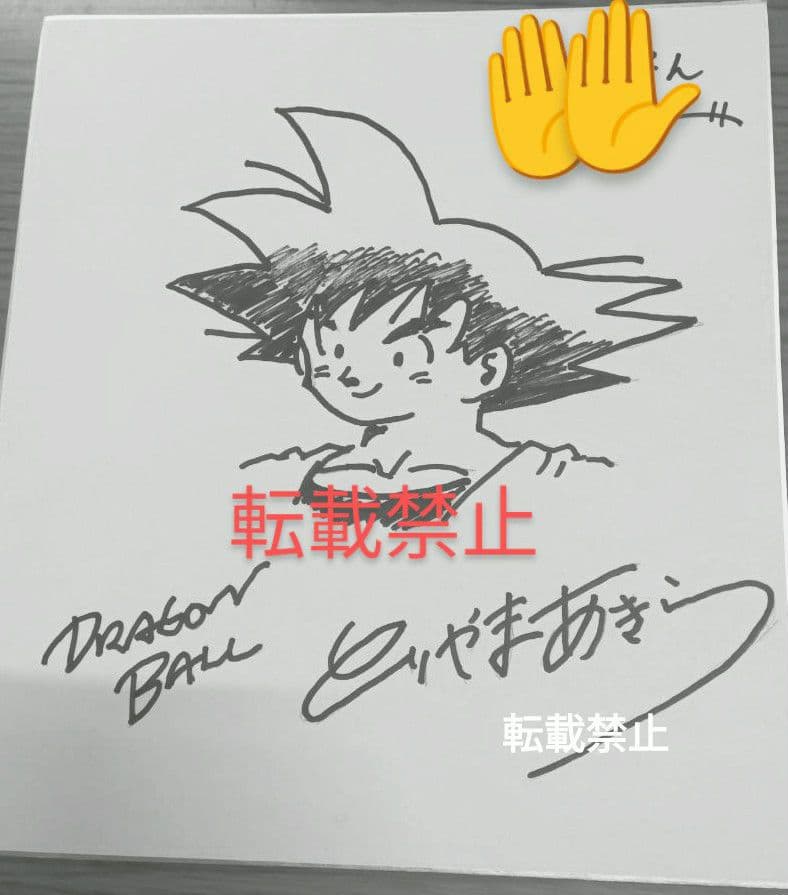 さん
転載禁止
DRAGON
BALL
とりやまあきら
転載禁止